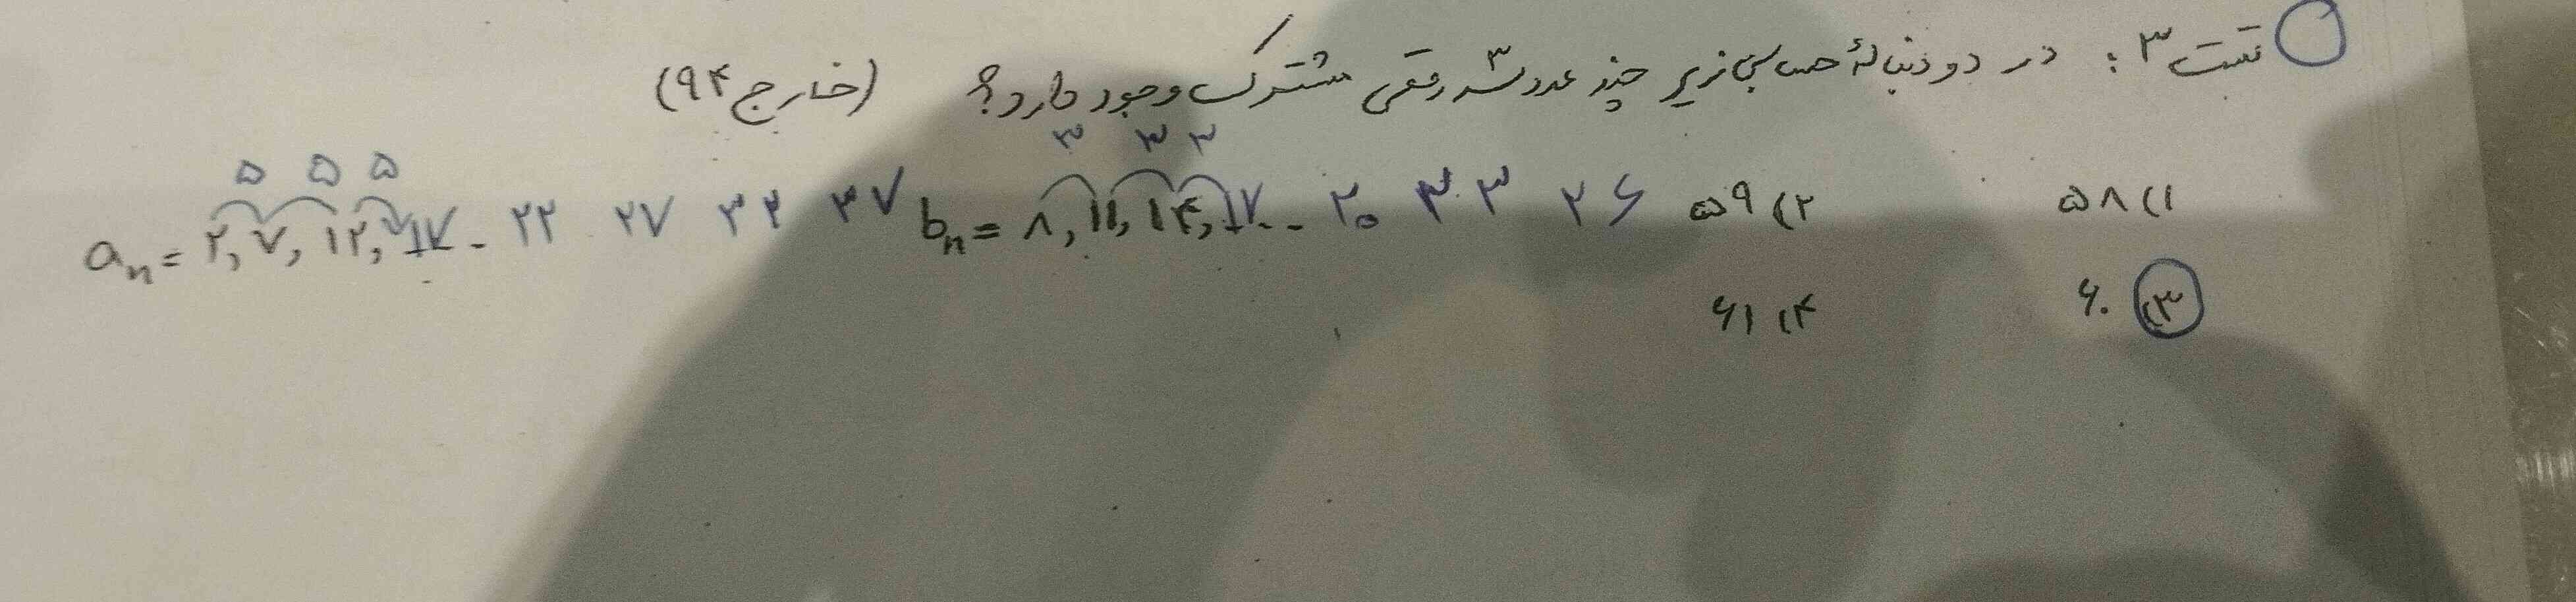 تست ۳: در دو دنبالهٔ حسابی زیر چند عدد سه رقمی مشترک وجود دارد؟ (خارج ۹۴)
۵ ۵ ۵ ۳ ۳ ۳
aₙ = ۲, ۷, ۱۲, ۱۷ - ۲۲ ۲۷ ۳۲ ۳۷ bₙ = ۸, ۱۱, ۱۴, ۱۷.. ۲۰ ۲۳ ۲۶
۱) ۵۸ ۲) ۵۹
۳) ۶۰ ۴) ۶۱